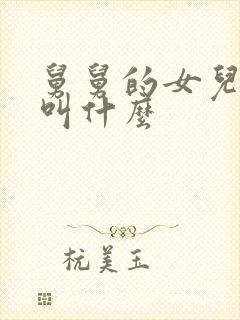 舅舅的女兒
叫什麼
杭美玉